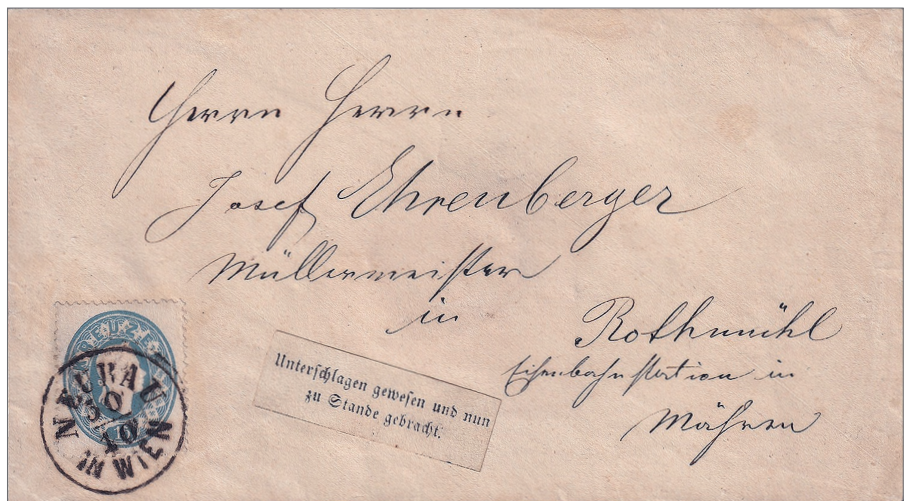 Herrn Herrn
Josef Ehrenberger
Müllermeister
in
Rothmühl
Eisenbahnstation in
Mähren
Unterschlagen gewesen und nun
zu Stande gebracht.
KREUZE
NEUBAU
30
10
IN WIEN